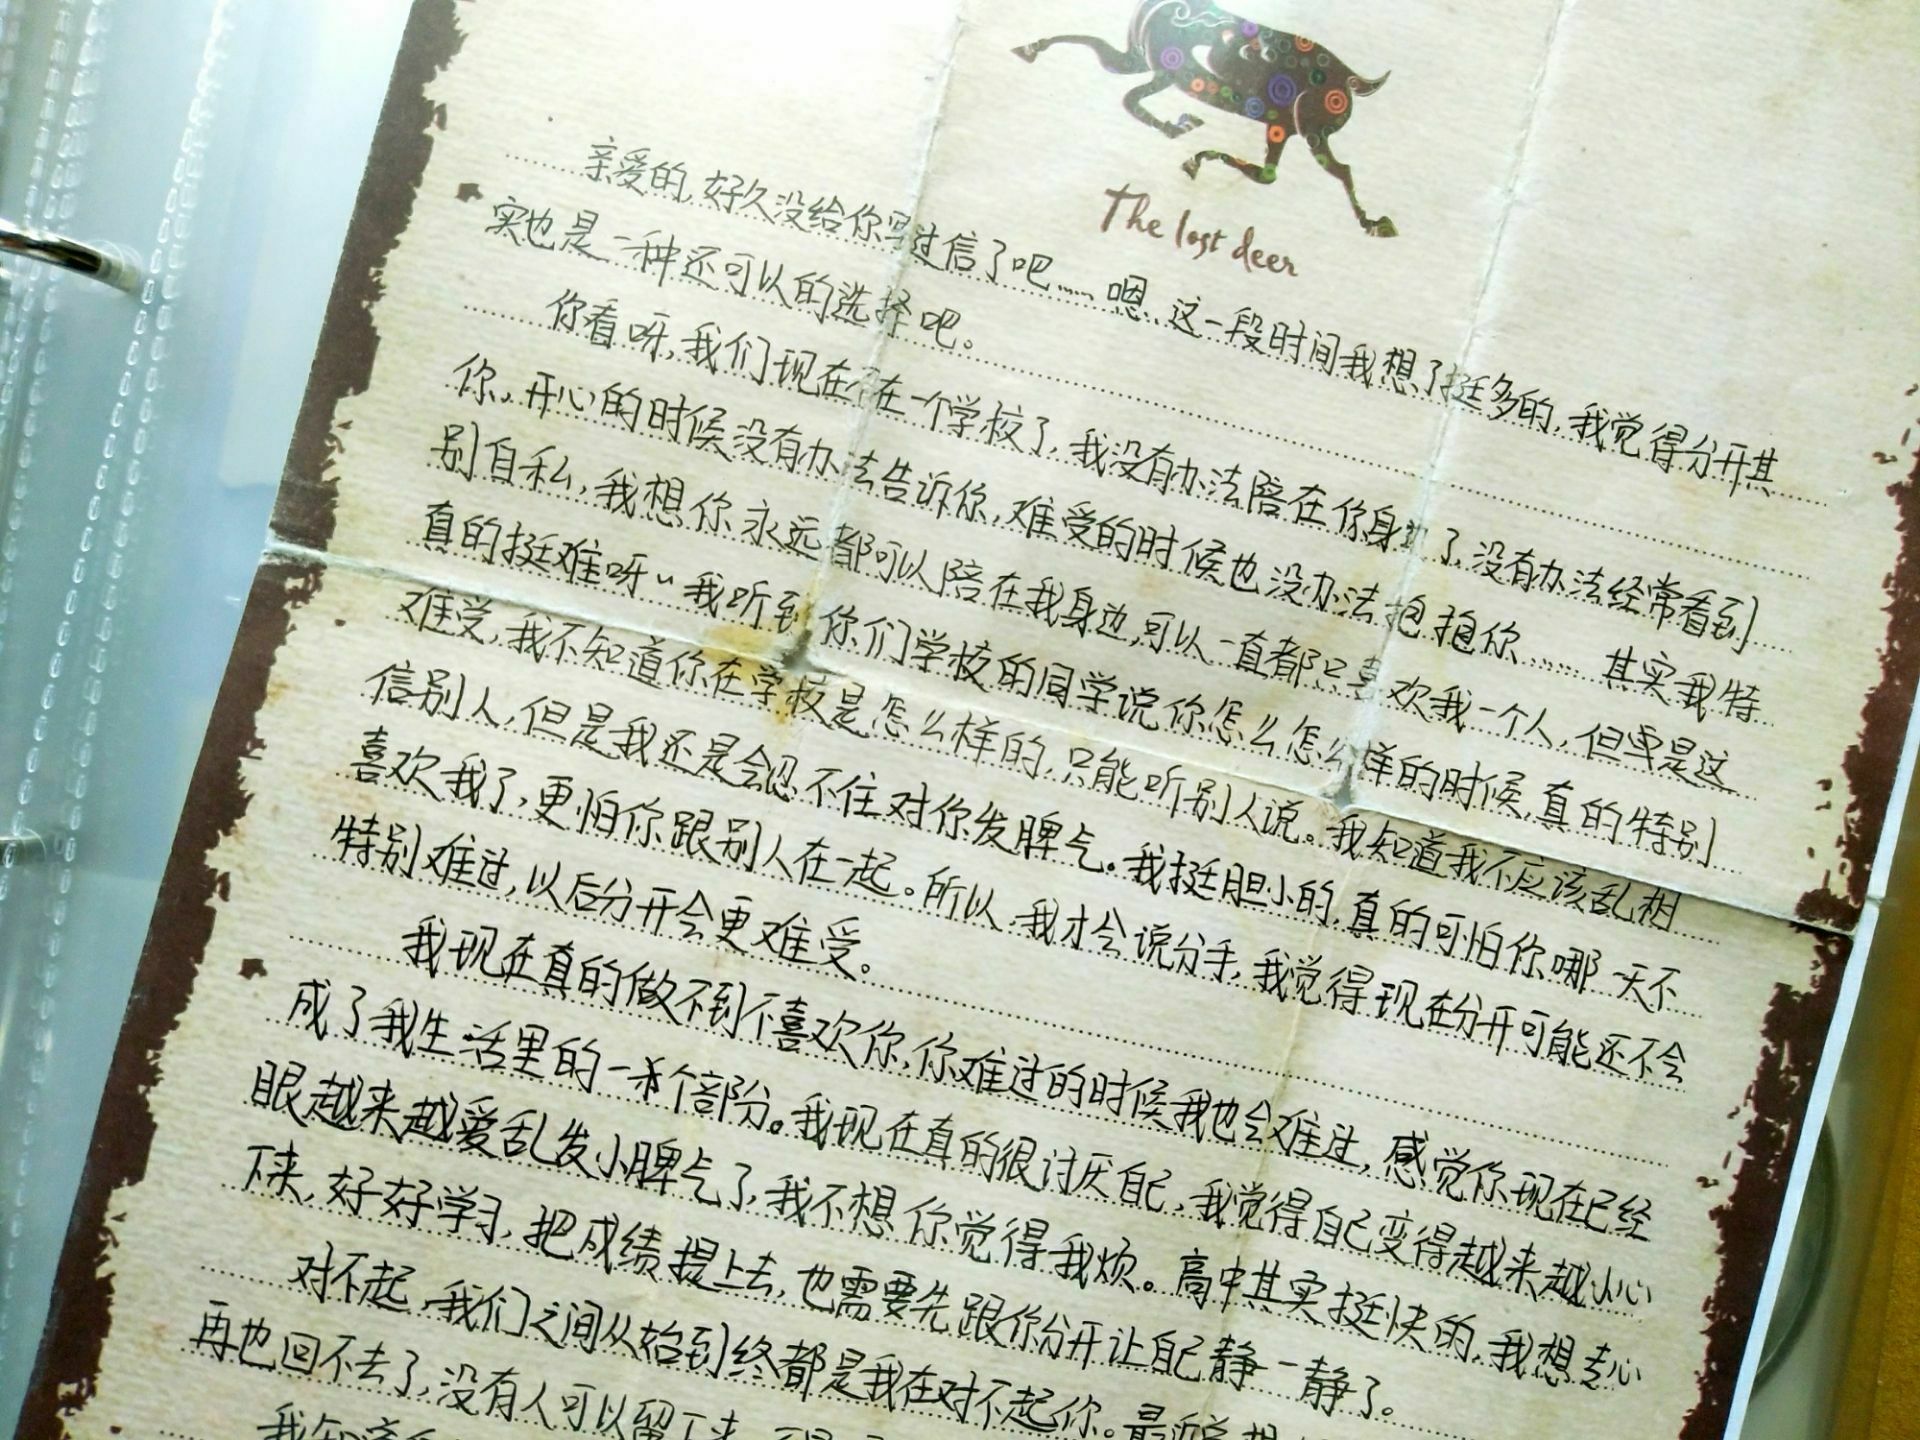 The lost deer
亲爱的,好久没给你写过信了吧……嗯,这一段时间我想了挺多的,我觉得分开其
实也是一种还可以的选择吧。
你看呀,我们现在不在一个学校了,我没有办法陪在你身边了,没有办法经常看到
你,开心的时候没有办法告诉你,难受的时候也没办法抱抱你……其实我特
别自私,我想你永远都可以陪在我身边,可以一直都只喜欢我一个人,但是这
真的挺难呀~我听到你们学校的同学说你怎么怎么样的时候,真的特别
难受,我不知道你在学校是怎么样的,只能听别人说。我知道我不应该乱相
信别人,但是我还是会忍不住对你发脾气。我挺胆小的,真的可怕你哪一天不
喜欢我了,更怕你跟别人在一起。所以,我才会说分手,我觉得现在分开可能还不会
特别难过,以后分开会更难受。
我现在真的做不到不喜欢你,你难过的时候我也会难过,感觉你现在已经
成了我生活里的一个部份。我现在真的很讨厌自己,我觉得自己变得越来越小心
眼越来越爱乱发小脾气了,我不想你觉得我烦。高中其实挺快的,我想专心
下来,好好学习,把成绩提上去,也需要先跟你分开让自己静一静了。
对不起,我们之间从始到终都是我在对不起你。最近总想
再也回不去了,没有人可以留下来
我知道